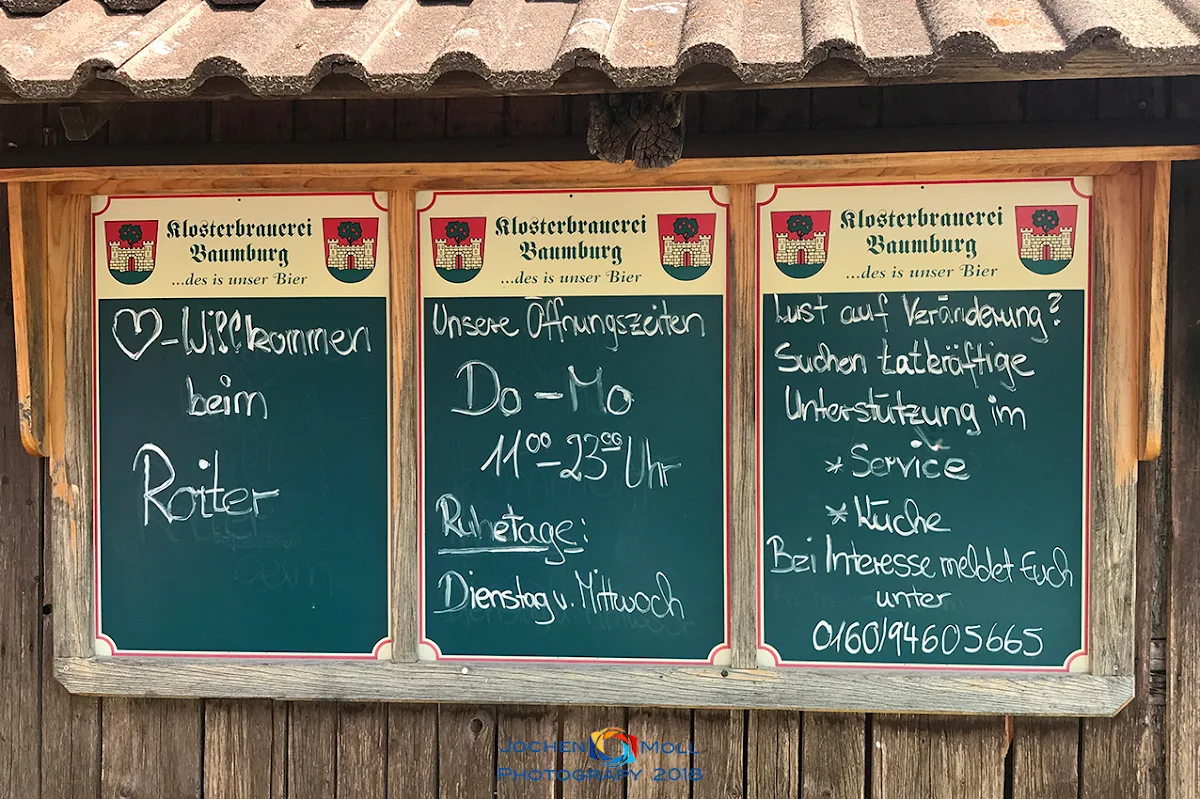 Klosterbrauerei
Baumburg
...des is unser Bier
♡-Willkommen
beim
Roiter
Klosterbrauerei
Baumburg
...des is unser Bier
Unsere Öffnungszeiten
Do - Mo
11⁰⁰-23⁰⁰ Uhr
Ruhetage:
Dienstag u. Mittwoch
Klosterbrauerei
Baumburg
...des is unser Bier
Lust auf Veränderung?
Suchen tatkräftige
Unterstützung im
* Service
* Küche
Bei Interesse meldet Euch
unter
0160/94605665
Jochen Moll
Photograpy 2018